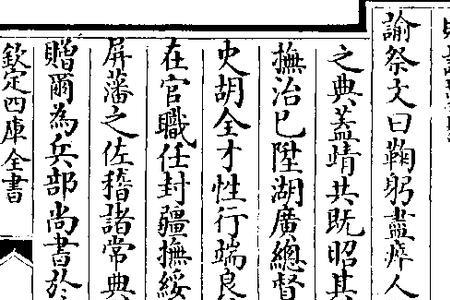 諭祭文曰鞠躬盡瘁人
之典蓋靖共既昭其
撫治已陞湖廣總督
史胡全才性行端良
在官職任封疆撫綏
屏藩之佐稽諸常典
贈爾為兵部尚書於
欽定四庫全書